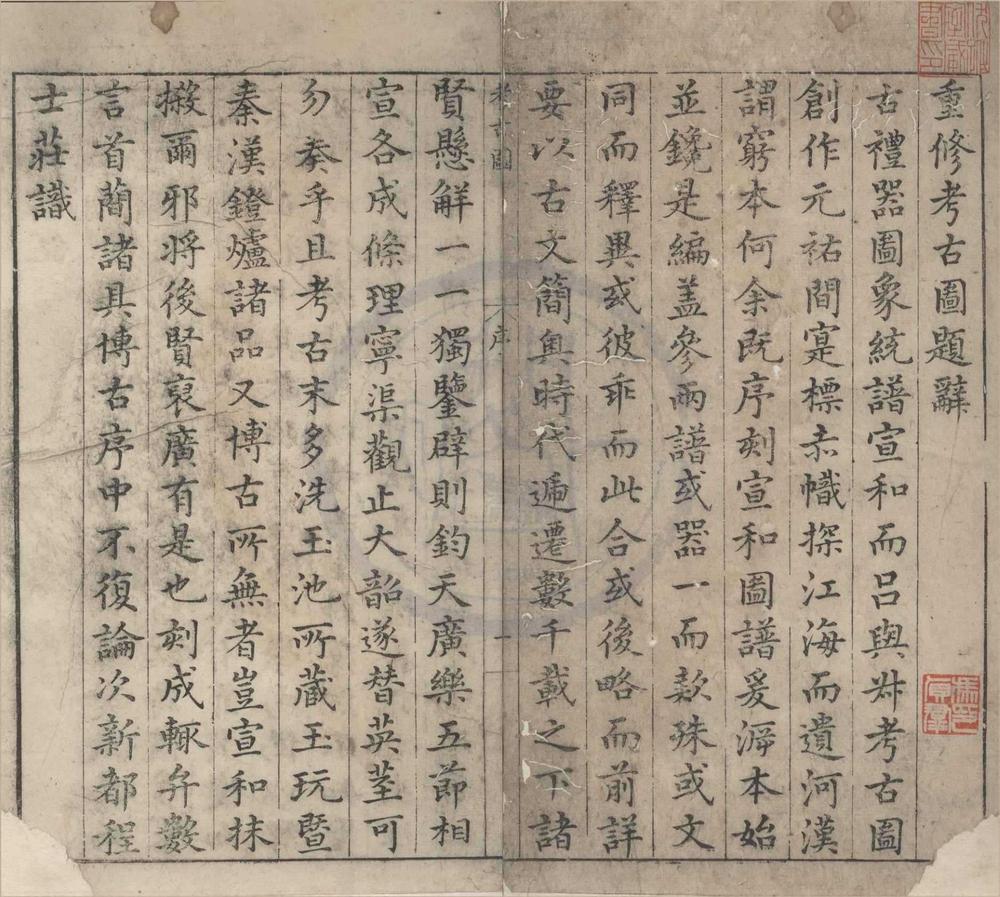 重修考古圖題辭
古禮器圖象統譜宣和而呂與叔考古圖
創作元祐間寔標赤幟探江海而遺河漢
謂窮本何余既序刻宣和圖譜爰遡本始
並鑱是編盖參兩譜或器一而款殊或文
同而釋異或彼乖而此合或後略而前詳
要以古文簡奥時代遞遷數千載之下諸
考古圖 序 一
賢懸解一一獨鑒辟則鈞天廣樂五節相
宣各成條理寧渠觀止大韶遂替英莖可
勿奏乎且考古末多洗玉池所藏玉玩暨
秦漢鐙爐諸品又博古所無者豈宣和抹
摋爾邪將後賢裒廣有是也刻成輙弁數
言首藺諸具博古序中不復論次新都程
士莊識